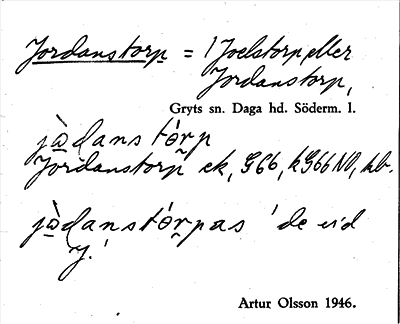 Jordanstorp = 1 Joelstorp eller
Jordanstorp,
Gryts sn. Daga hd. Söderm. l.
jò̱danstó̱rp
Jordanstorp ek, G66, kG66NV, hb.
jò̱danstó̱rpas 'de vid
J.'
Artur Olsson 1946.